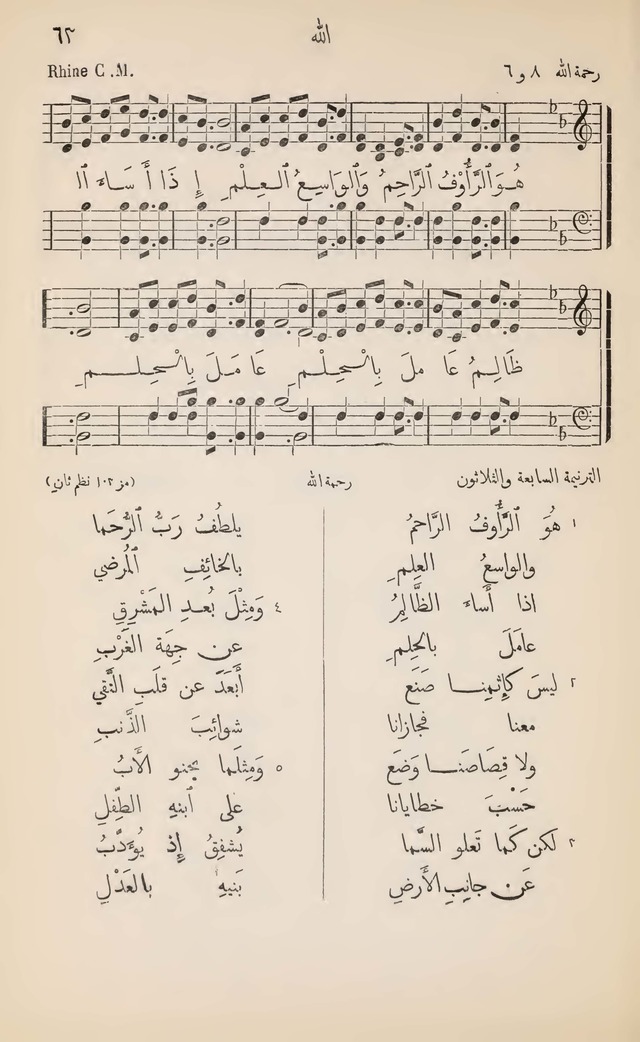 ٦٢
الله
Rhine C .M.
رحمة الله ٨ و ٦
هُوَ الرَّأُوْفُ الرَّاحِمُ وَالوَاسِعُ العِلْمِ إِذَا أَسَاءَ ال
ظَالِمُ عَا مَلَ بِالْحِلْمِ عَا مَلَ بِالْحِلمِ
الترنيمة السابعة والثلاثون
رحمة الله
(مز ١٠٢ نظم ثاني)
١ هُوَ الرَّأُوفُ الرَّاحمُ
والواسعُ العِلمِ
اذا أساءَ الظَّالِمُ
عامَلَ بالحِلمِ
٢ ليسَ كَإِثمِنا صَنَع
معنا فجازانا
ولا قِصَاصَنا وَضَع
حَسْبَ خطايانا
٣ لكن كَما تَعلو السَّما
عَن جانِبِ الأَرضِ
يلطُفُ رَبُّ الرُّحَما
بالخائِفِ المُرضي
٤ وَمِثْلَ بُعدِ المَشْرِقِ
عن جِهَةِ الغَرْبِ
أَبعَدَ عن قلبِ التَّقي
شوائِبَ الذَّنبِ
٥ وَمِثلَما يحنو الأَبُ
على أبنهِ الطِّفلِ
يُشفِقُ إِذ يُؤَدِّبُ
بَنيهِ بالعَدْلِ